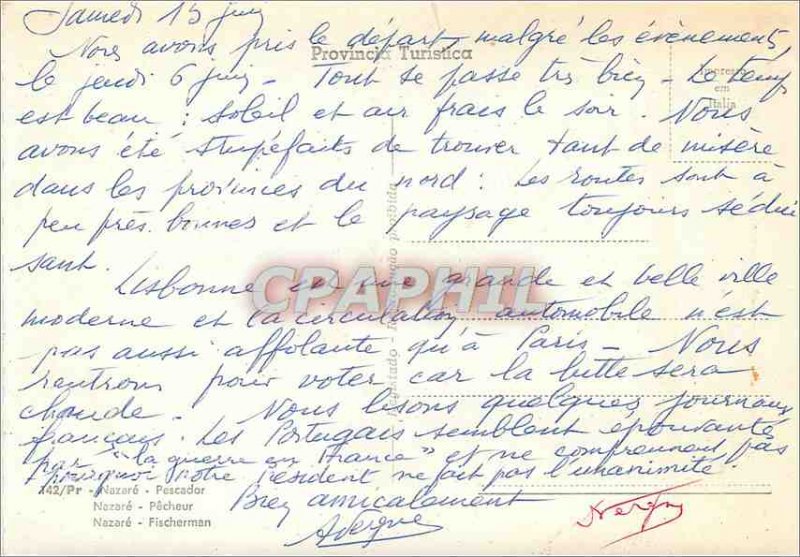 Samedi 15 juin
Nous avons pris le départ malgré les évènements,
Provincia Turistica
le jeudi 6 juin - Tout se passe très bien - Le temps
Impresso
em
Italia
est beau : soleil et air frais le soir. Nous
avons été stupéfaits de trouver tant de misère
dans les provinces du nord : Les routes sont à
peu près bonnes et le paysage toujours sédui
sant.
CPAPHIL
Lisbonne est une grande et belle ville
moderne et la circulation automobile n'est
pas aussi affolante qu'à Paris - Nous
rentrons pour voter car la lutte sera
chaude - Nous lisons quelques journaux
français. Les Portugais semblent épouvantés
par "la guerre en France" et ne comprennent pas
pourquoi notre Président ne fait pas l'unanimité.
342/Pr - Nazaré - Pescador
Nazaré - Pêcheur
Nazaré - Fischerman
Bien amicalement